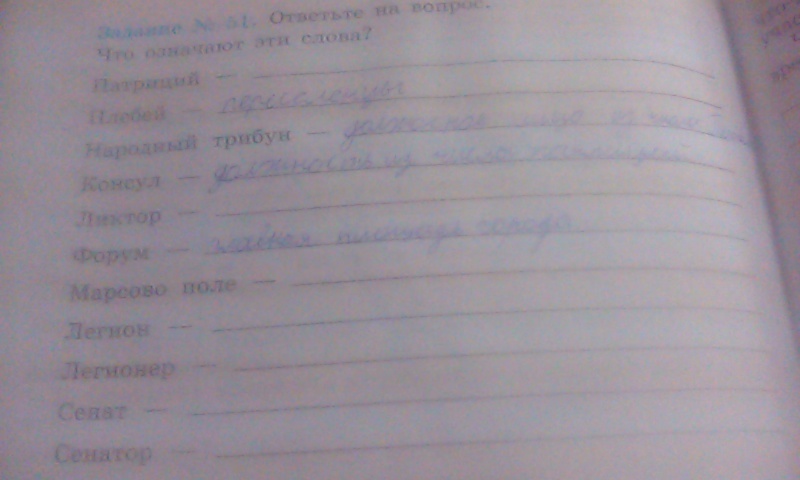 Задание № 51. Ответьте на вопрос.
Что означают эти слова?
Патриций —
Плебей — переселенцы
Народный трибун — должностное лицо из
Консул — должность из числа
Ликтор —
Форум — главная площадь города
Марсово поле —
Легион —
Легионер —
Сенат —
Сенатор —